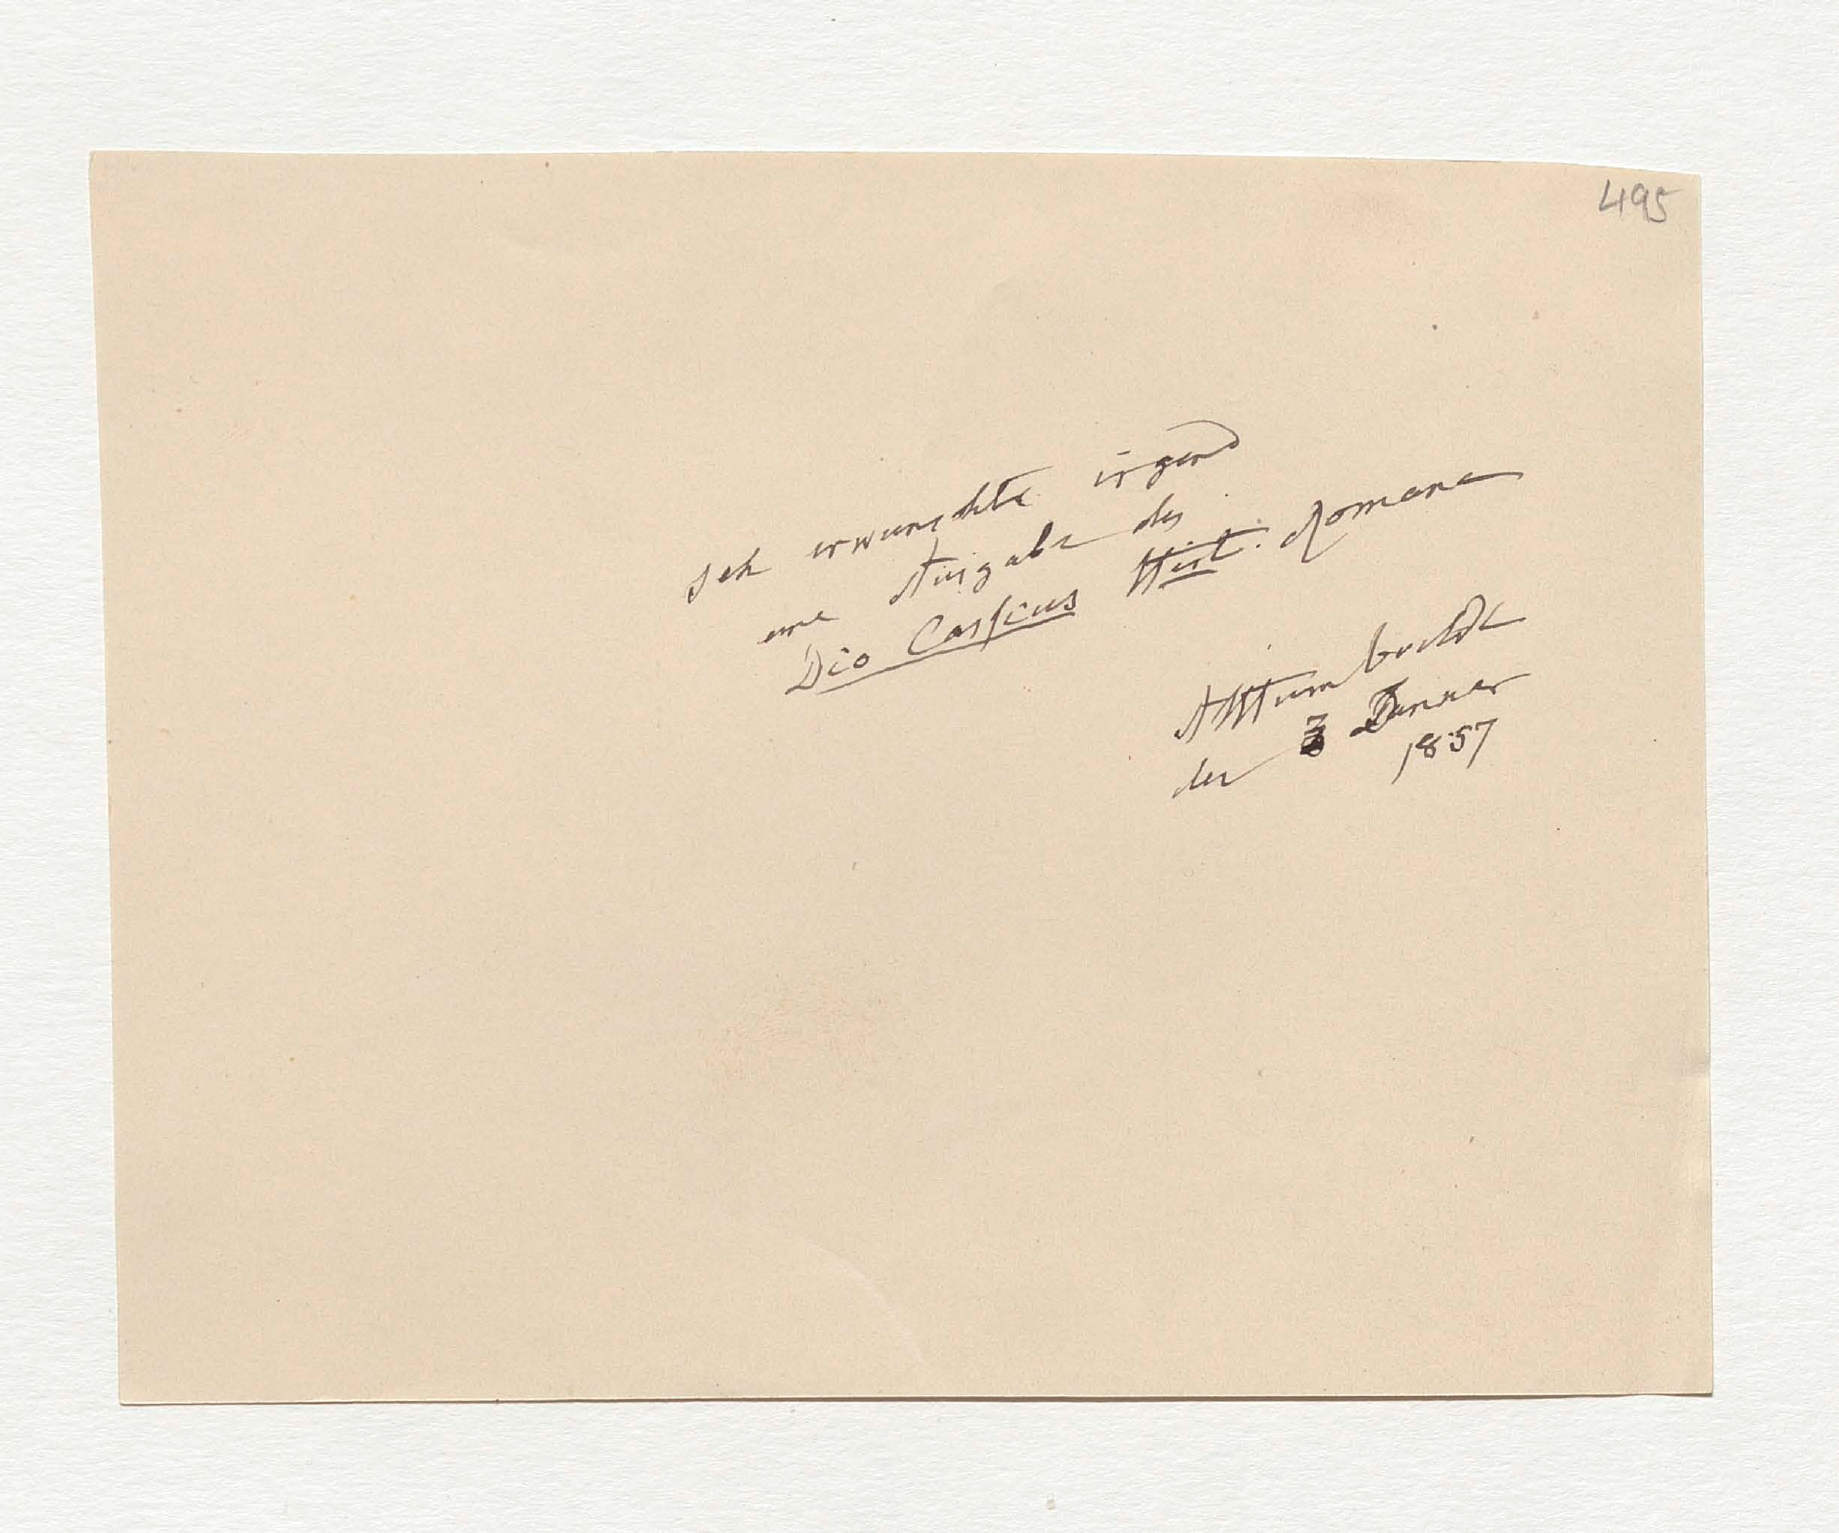 495
Ich erwunschte irgend
eine Ausgabe des
Dio Cassius Hist. Romana
AHumboldt
den 3 Januar
1857